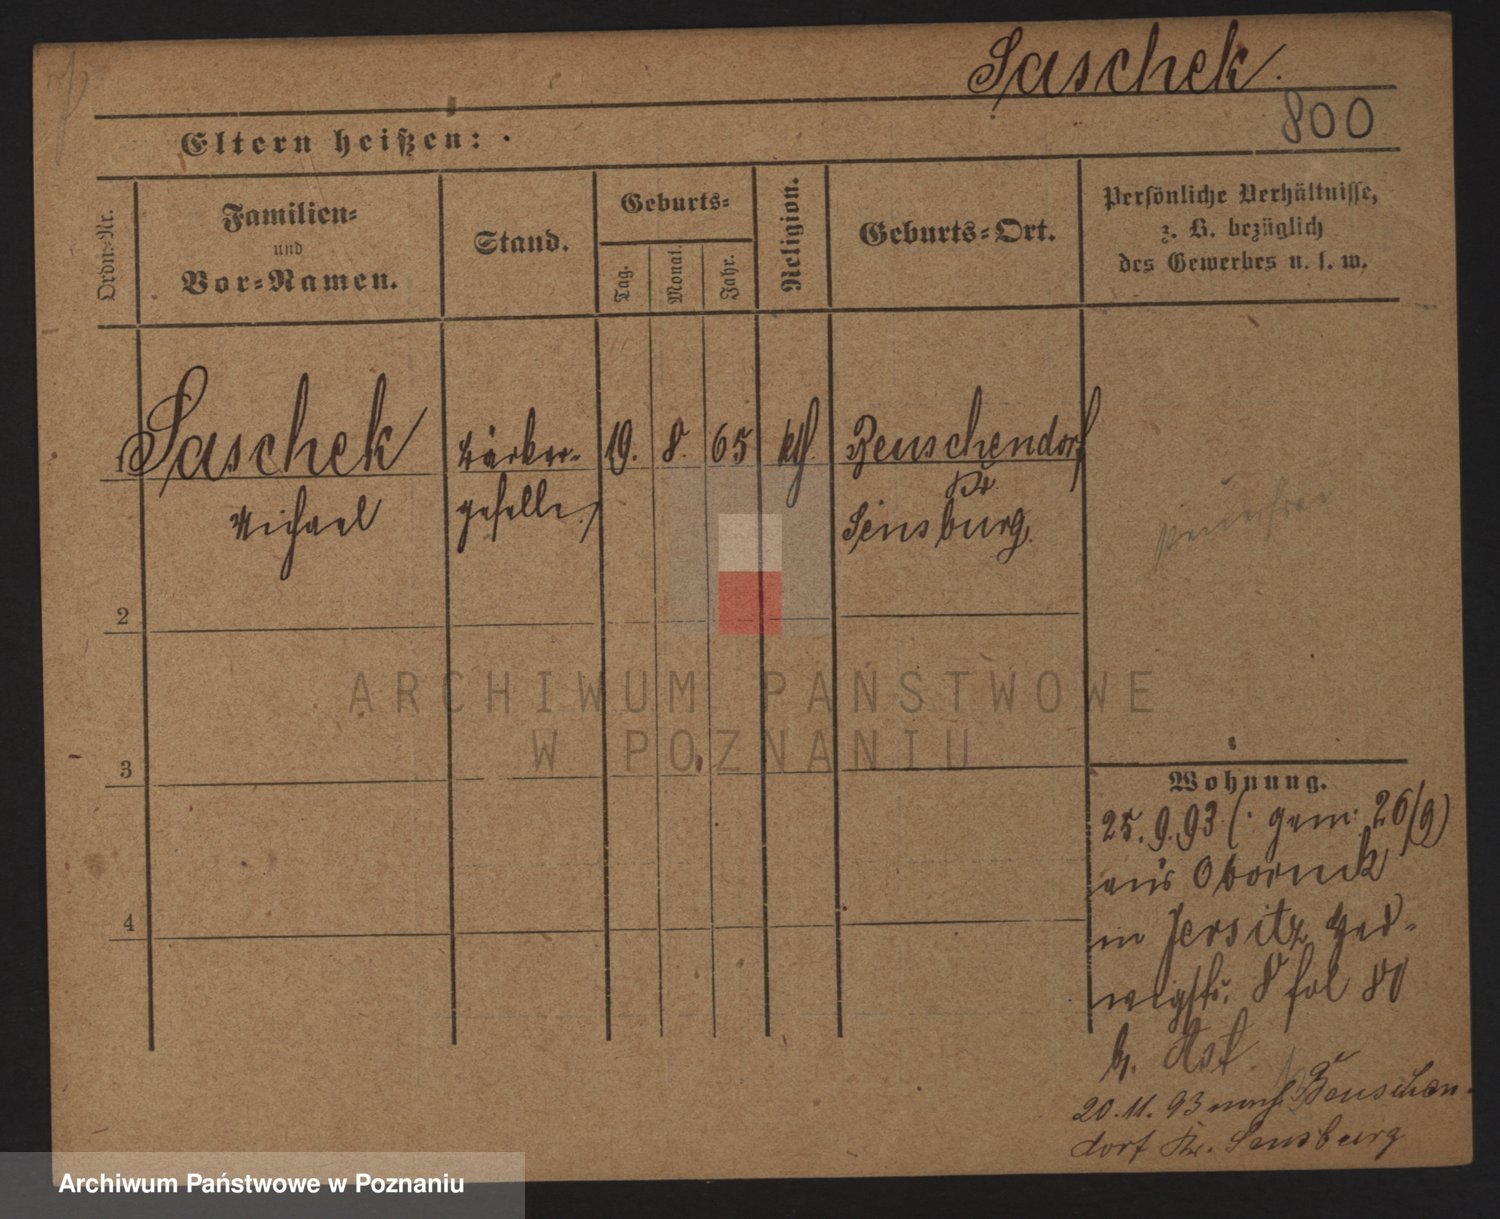 Saschek.
800
Eltern heißen:
Ordn.=Nr.
Familien=
und
Vor=Namen.
Stand.
Geburts=
Tag.
Monat.
Jahr.
Religion.
Geburts=Ort.
Persönliche Verhältnisse,
z. B. bezüglich
des Gewerbes u. s. w.
1
Saschek
Michael
geselle
19. 8. 65
kth.
Reuschendorf
Kr.
Sensburg.
2
ARCHIWUM PAŃSTWOWE
W POZNANIU
3
Wohnung.
25.9.93 (: gem: 26/9)
aus Obornik
in Jersitz Hed-
wigstr. 8 fol 80
b. Ast.
20.11.93 nach Reuschen-
dorf Kr. Sensburg
4
Archiwum Państwowe w Poznaniu